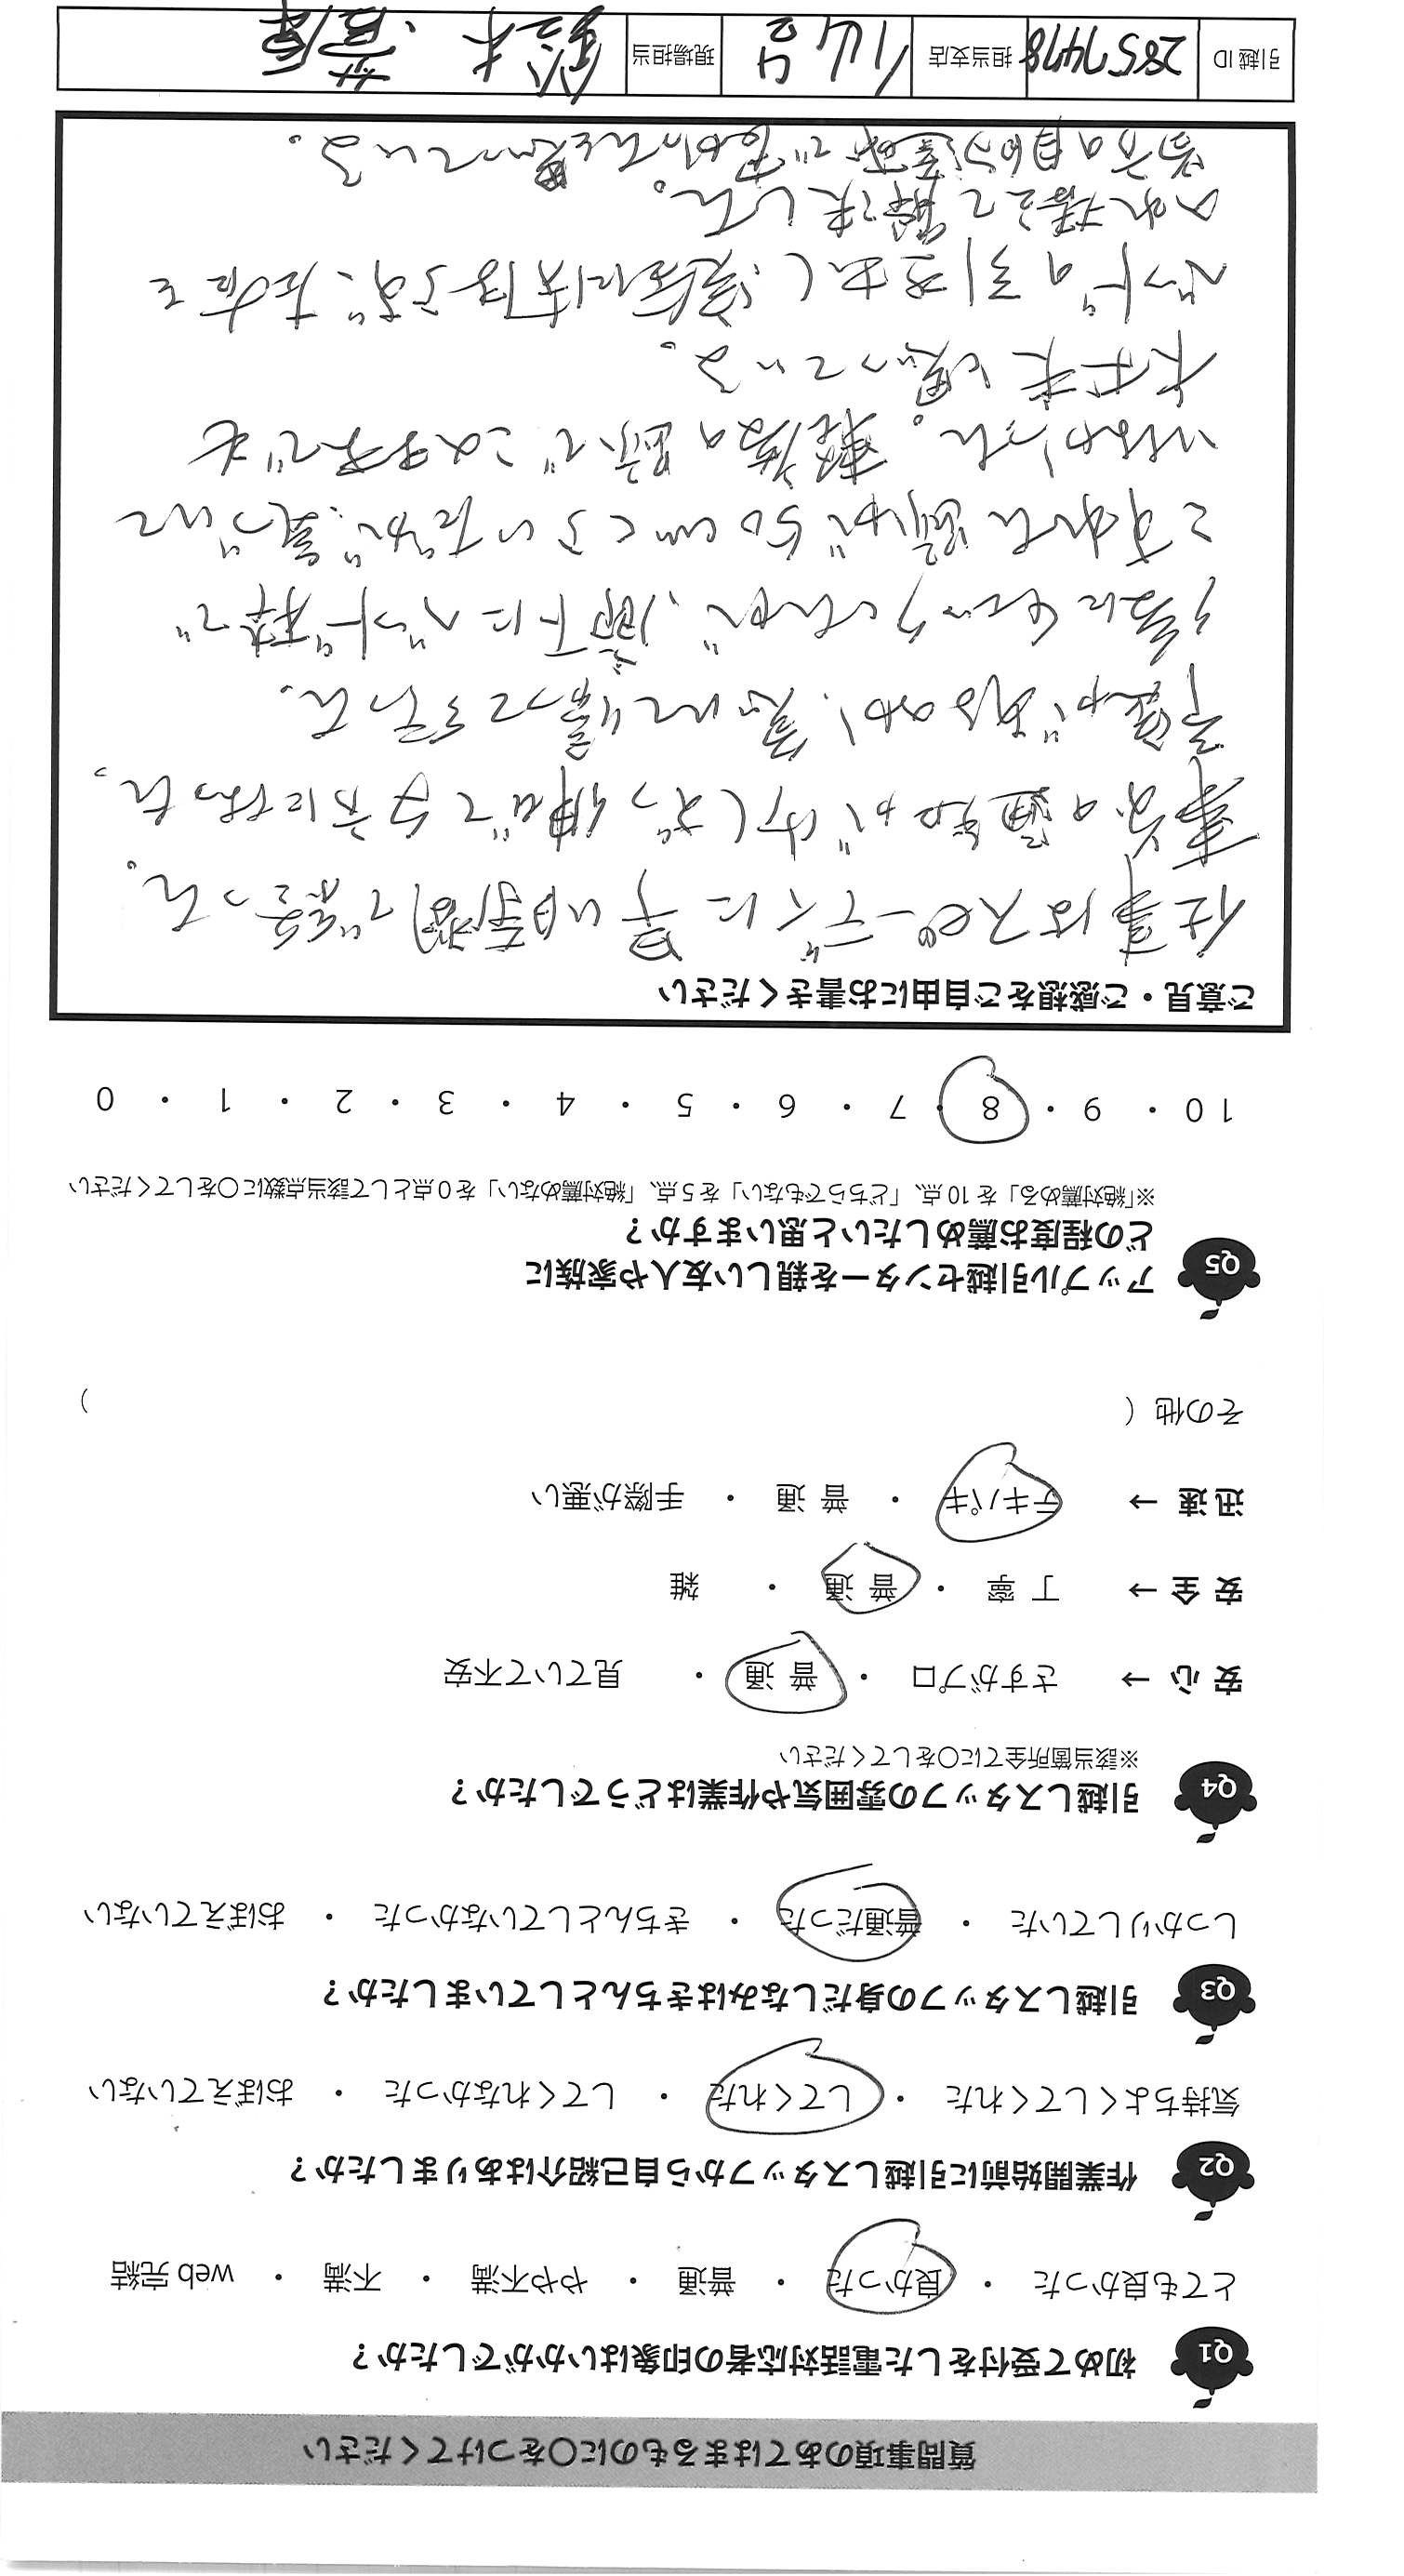 質問事項のあてはまるものに〇をつけてください
Q1 初めて受付をした電話対応者の印象はいかがでしたか?
とても良かった ・ 良かった ・ 普通 ・ やや不満 ・ 不満 ・ web 完結
Q2 作業開始前に引越しスタッフから自己紹介はありましたか?
気持ちよくしてくれた ・ してくれた ・ してくれなかった ・ おぼえていない
Q3 引越しスタッフの身だしなみはきちんとしていましたか?
しっかりしていた ・ 普通だった ・ きちんとしていなかった ・ おぼえていない
Q4 引越しスタッフの雰囲気や作業はどうでしたか?
※該当箇所全てに〇をしてください
安 心 → さすがプロ ・ 普 通 ・ 見ていて不安
安 全 → 丁 寧 ・ 普 通 ・ 雑
迅 速 → テキパキ ・ 普 通 ・ 手際が悪い
その他 ( )
Q5 アップル引越センターを親しい友人や家族に
どの程度お薦めしたいと思いますか?
※「絶対薦める」を 10 点、「どちらでもない」を 5 点、「絶対薦めない」を 0 点として該当点数に〇をしてください
10 ・ 9 ・ 8 ・ 7 ・ 6 ・ 5 ・ 4 ・ 3 ・ 2 ・ 1 ・ 0
ご意見・ご感想をご自由にお書きください
仕事はスピーディに早い時間で終った。
事前の通知が少しずつ伸びて夕方になった。
幸運がある、急いで帰って行った。
後になっての たが、廊下にベッド枠で
こすれた 跡が50cmくらいだが、気づいて
いなかった。 軽傷の跡でこのままでも
大丈夫と思っている。
ベッドの引き出し 左右を
入れ替えて解決した。
当方の自分 で と思っている。
引越 ID 28577478 担当支店 仙台 現場担当 鈴木、菅原